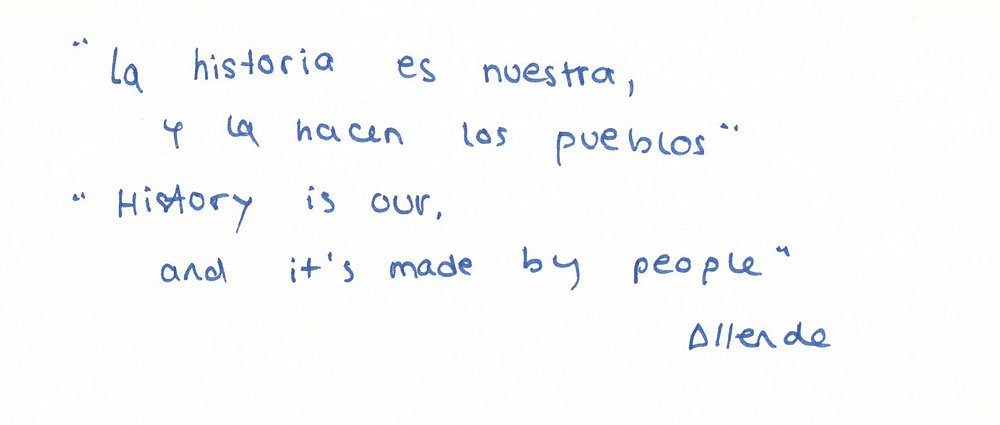 "La historia es nuestra,
y la hacen los pueblos"
"History is our,
and it's made by people"
Allende